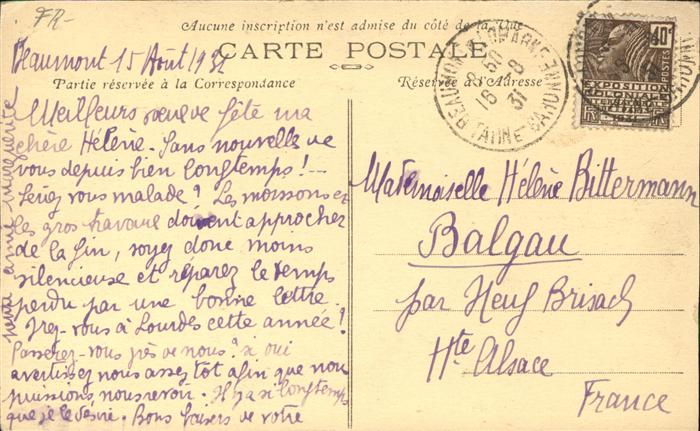 FR-
Aucune inscription n'est admise du côté de la Vue
CARTE POSTALE
Partie réservée à la Correspondance
Réservée à l'Adresse
Beaumont 15 Août 1931
Meilleurs vœux de fête ma
chère Hélène. Sans nouvelle de
vous depuis bien longtemps!--
Seriez vous malade? Les moissons et
les gros travaux doivent approcher
de la fin, soyez donc moins
silencieuse et réparez le temps
perdu par une bonne lettre.
Irez-vous à Lourdes cette année?
Passerez-vous près de nous? si oui
avertissez nous assez tôt afin que nous
puissions nous revoir. Il y a si longtemps
que je le désire. Bons baisers de votre
petite amie Marguerite
Mademoiselle Hélène Bittermann
Balgau
par Neuf Brisach
Hte Alsace
France
BEAUMONT
TARNE-GARONNE
18 -8
31
40c
EXPOSITION